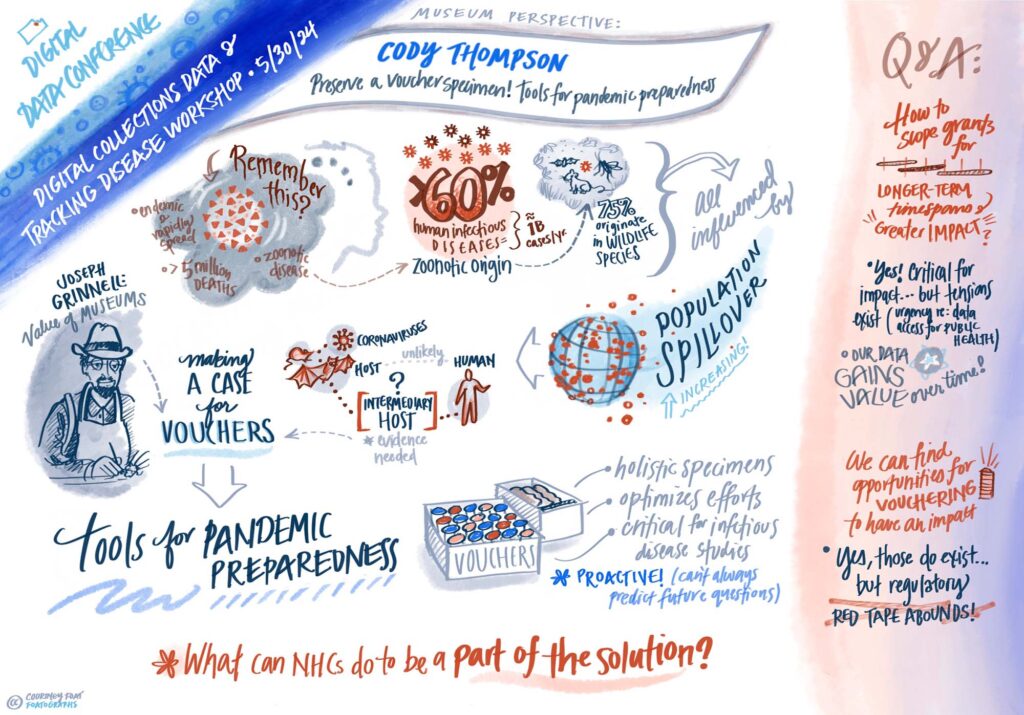 DIGITAL
DATA CONFERENCE
DIGITAL COLLECTIONS DATA &
TRACKING DISEASE WORKSHOP • 5/30/24
MUSEUM PERSPECTIVE:
CODY THOMPSON
Preserve a voucher specimen! Tools for pandemic preparedness
Remember
this?
• endemic &
rapidly
spread
• > 5 million
DEATHS
• zoonotic
disease
>60%
human infectious
DISEASES =
≈
1B
cases/yr
zoonotic origin
75%
originate
in WILDLIFE
SPECIES
all
influenced
by
POPULATION
SPILLOVER
INCREASING!
JOSEPH
GRINNELL:
Value of MUSEUMS
making
A CASE
for
VOUCHERS
CORONAVIRUSES
HOST
unlikely
HUMAN
?
[INTERMEDIARY
HOST]
* evidence
needed
tools for PANDEMIC
PREPAREDNESS
VOUCHERS
• holistic specimens
• optimizes efforts
• critical for infectious
disease studies
* PROACTIVE! (can't always
predict future questions)
* What can NHCs do to be a part of the solution?
Q&A:
How to
scope grants
for
LONGER-TERM
timespans &
Greater IMPACT?
• Yes! Critical for
impact... but tensions
exist (urgency re: data
access for PUBLIC
HEALTH)
• OUR DATA
GAINS
VALUE over time!
We can find
opportunities for
VOUCHERING
to have an impact
• Yes, those do exist...
but regulatory
RED TAPE ABOUNDS!
cc COURTNEY FOAT
FOATOGRAPHS